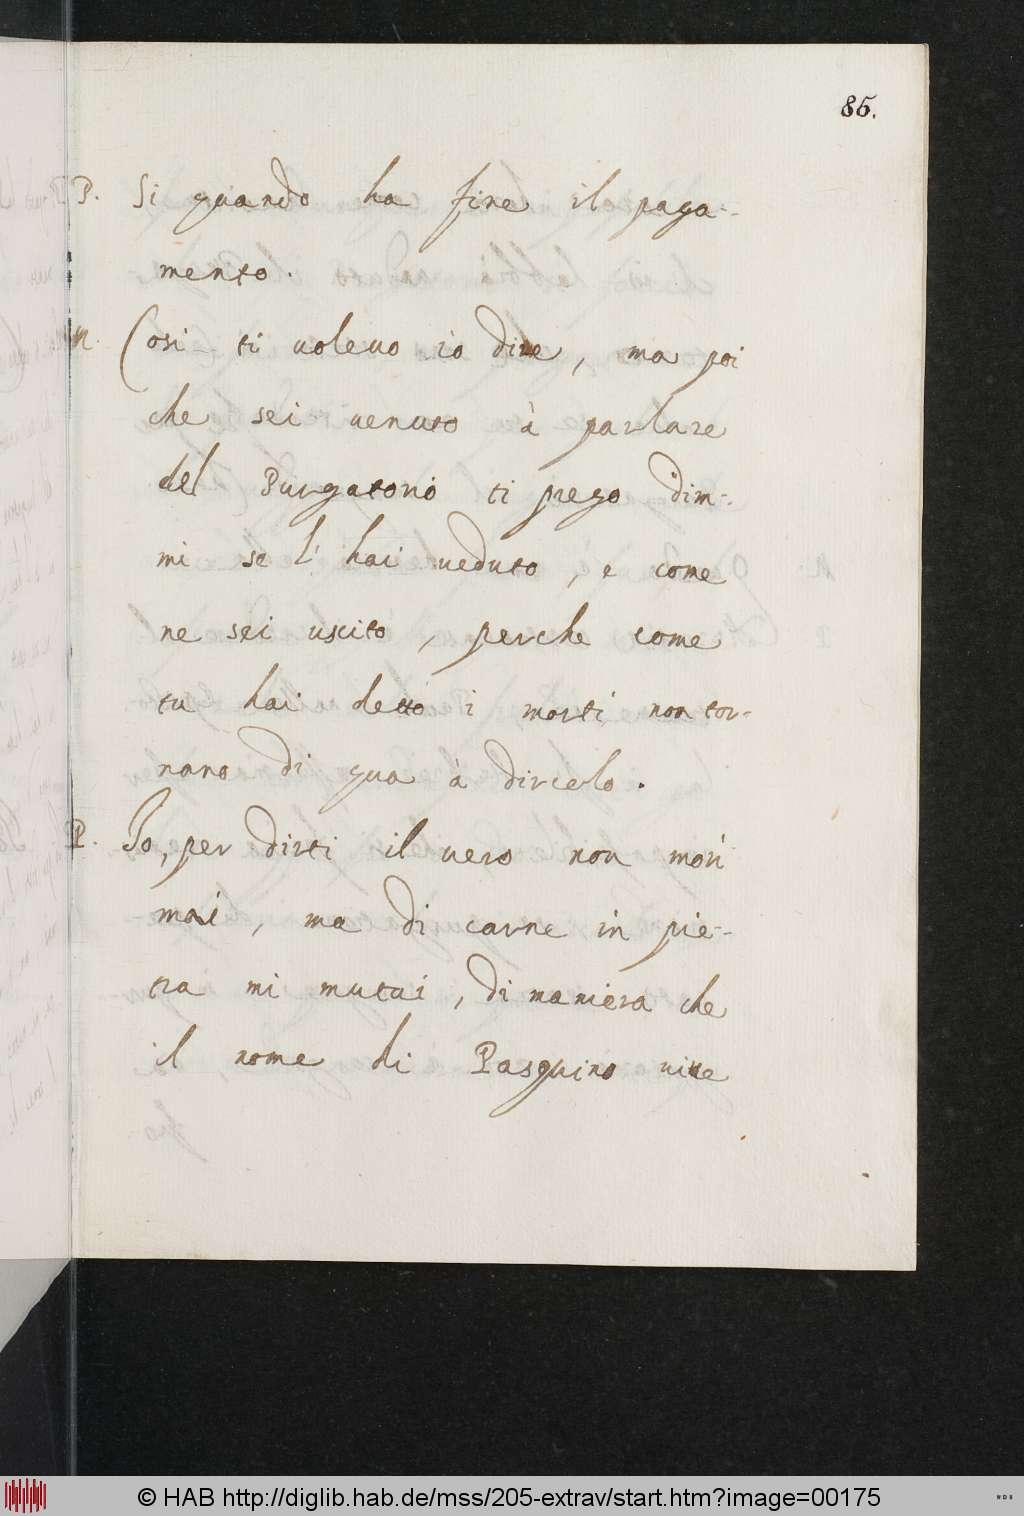 85.
P. Si quando ha fine il paga-
mento.
M. Cosi ti uoleuo io dire, ma poi
che sei uenuto à parlare
del Purgatorio ti prego dim-
mi se l'hai ueduto, e come
ne sei uscito, perche come
tu hai detto i morti non tor-
nano di qua à dircelo.
P. Io, per dirti il uero non morì
mai, ma di carne in pie-
tra mi mutai, di maniera che
il nome di Pasquino uiue
© HAB http://diglib.hab.de/mss/205-extrav/start.htm?image=00175